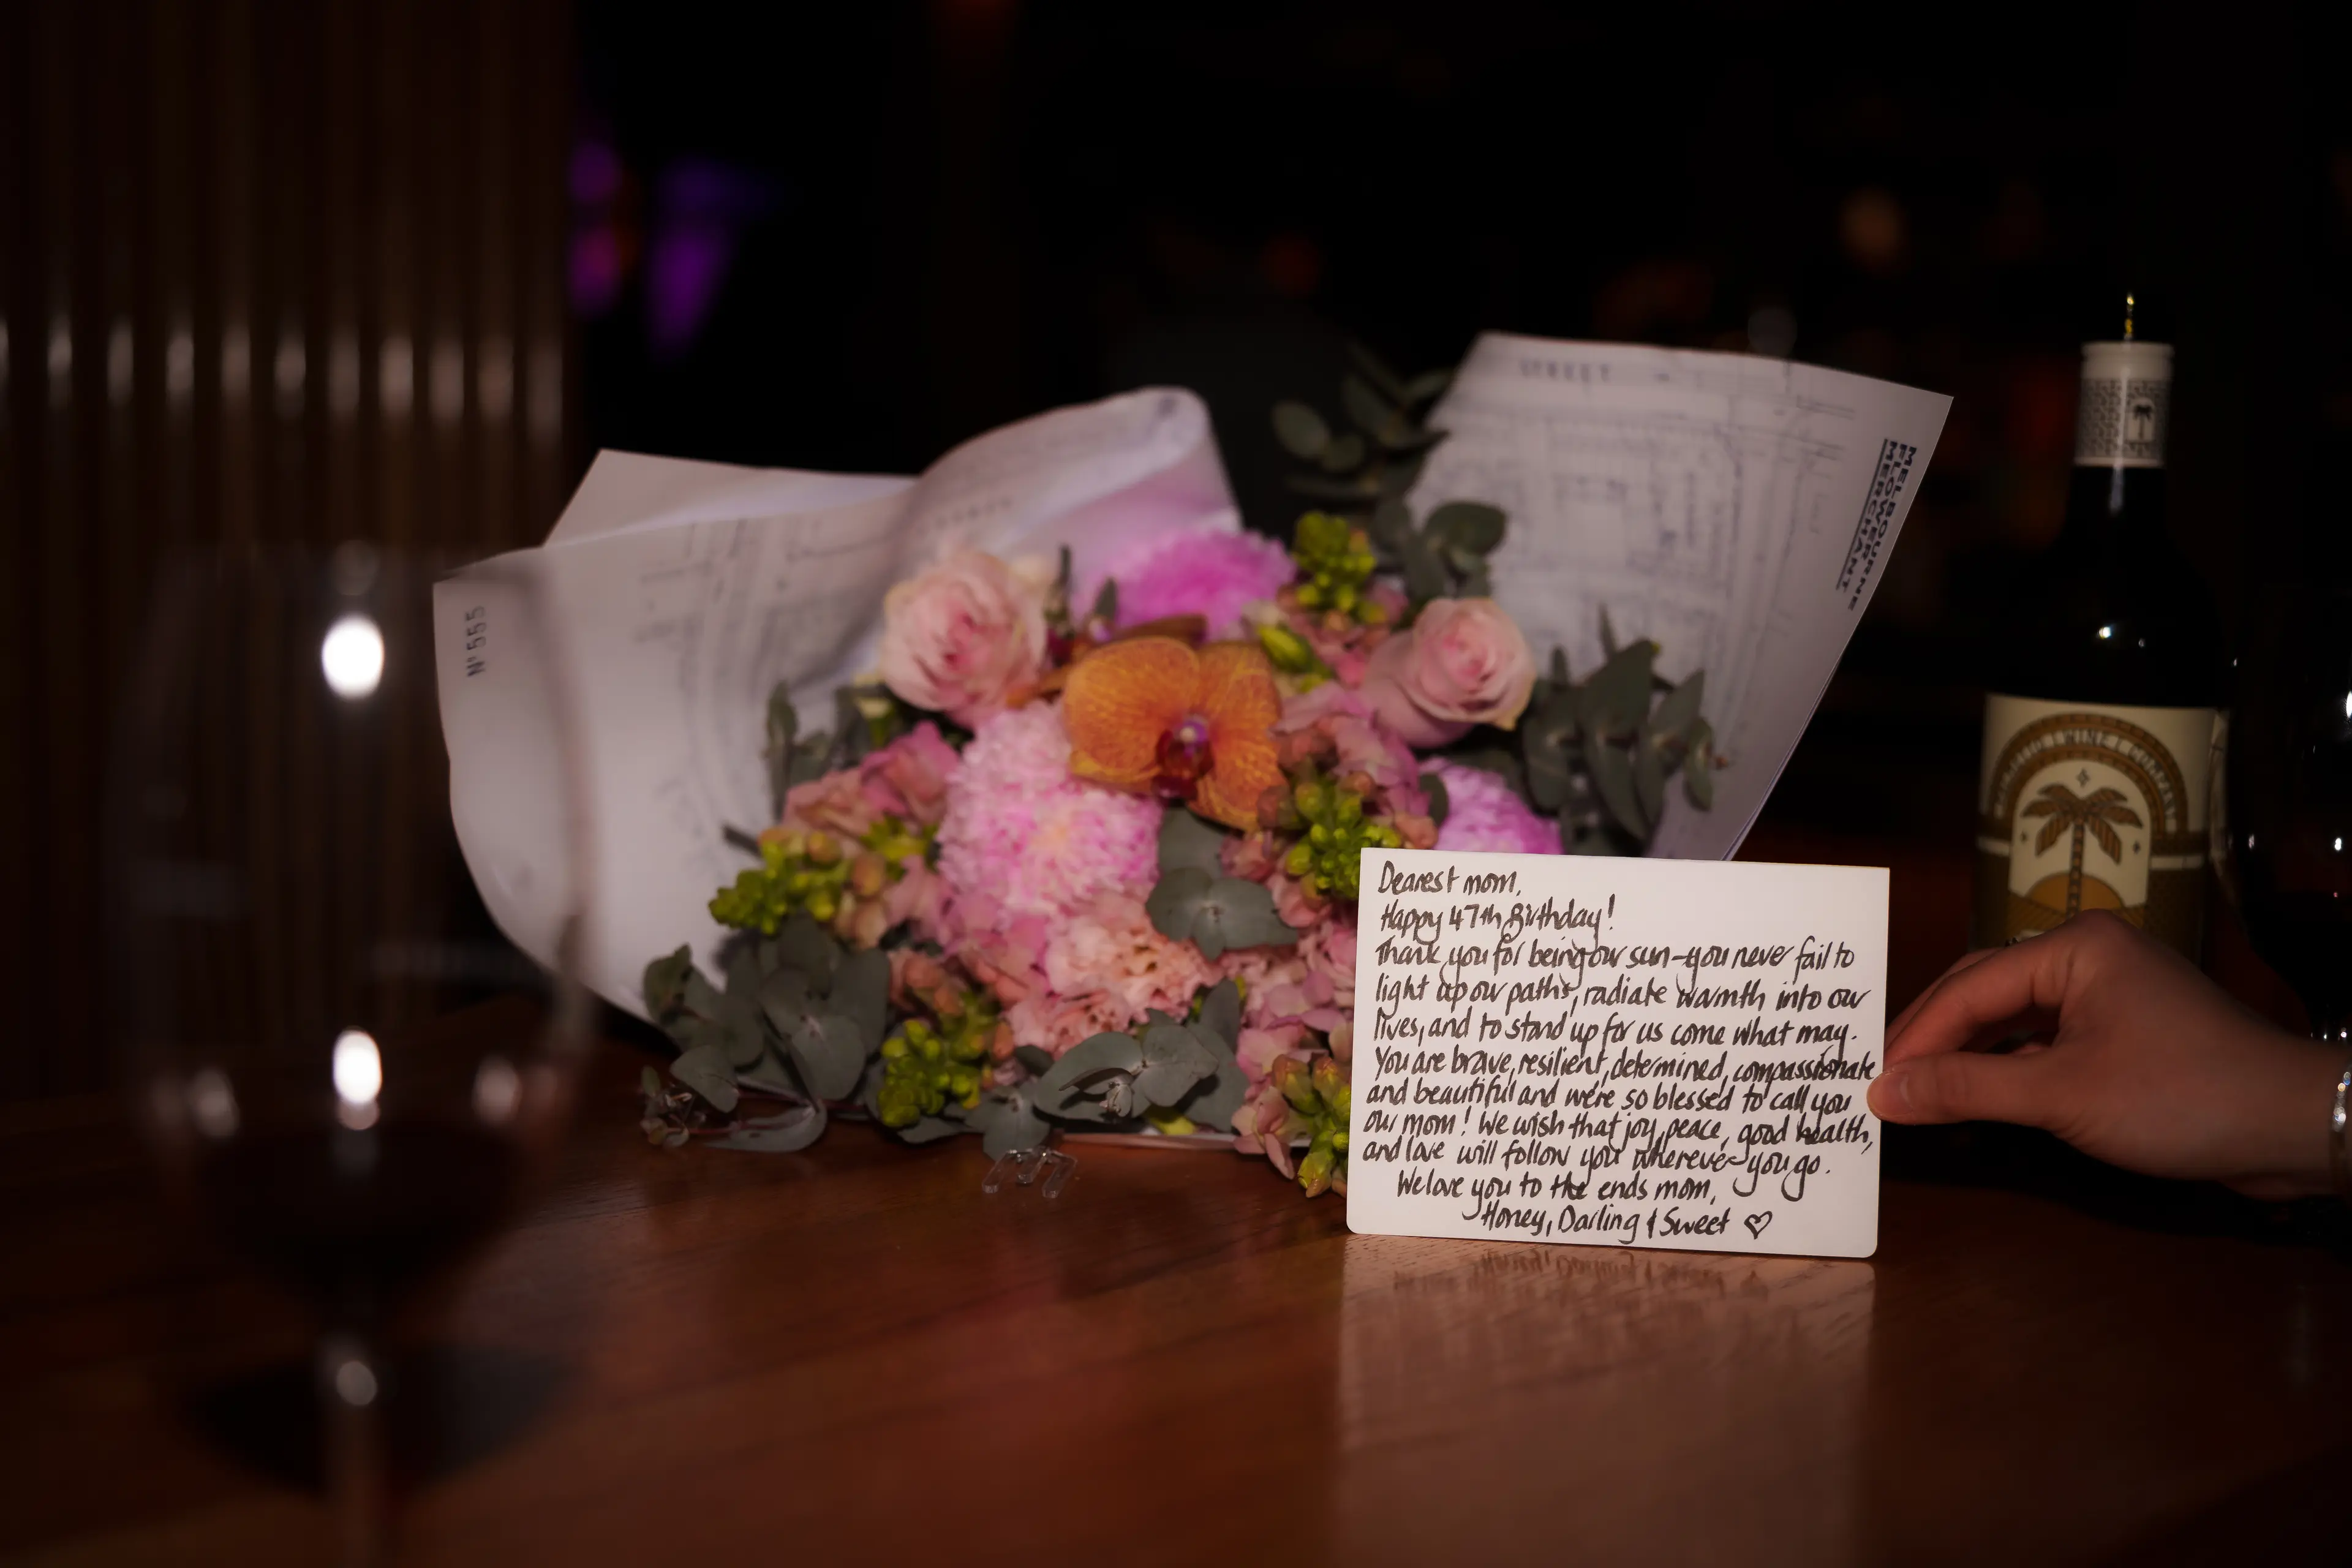 STREET
MELBOURNE
FLOWER
MERCHANT
Nº555
WINE
Dearest mom,
Happy 47th Birthday!
Thank you for being our sun-you never fail to
light up our paths, radiate warmth into our
lives, and to stand up for us come what may.
You are brave, resilient, determined, compassionate
and beautiful and we're so blessed to call you
our mom! We wish that joy, peace, good health,
and love will follow you wherever you go.
We love you to the ends mom,
Honey, Darling & Sweet ♡